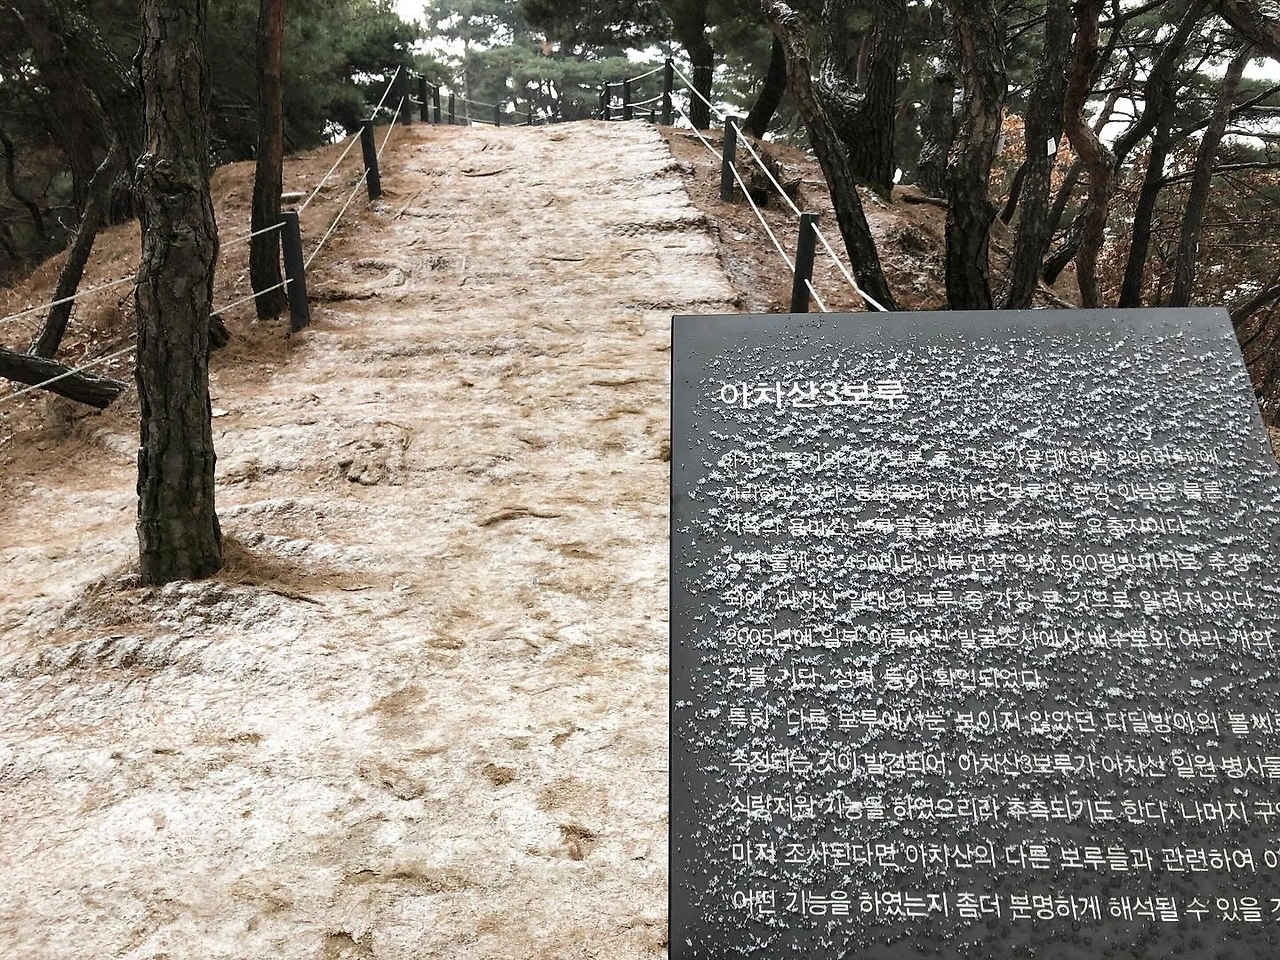 아차산3보루
아차산 줄기의 여러 보루 중 가장 가운데(해발 296미터)에
자리하고 있다. 동남쪽의 아차산 보루와 한강 이남은 물론,
서쪽의 용마산 보루들을 바라볼 수 있는 요충지이다.
성벽 둘레 약 450미터 내부면적 약 6,500평방미터로 추정
되어, 아차산 일대의 보루 중 가장 큰 것으로 알려져 있다.
2005년에 일부 이루어진 발굴조사에서 배수로와 여러 개의
건물 기단, 성벽 등이 확인되었다.
특히, 다른 보루에서는 보이지 않았던 디딜방아의 볼씨
추정되는 것이 발견되어, 아차산3보루가 아차산 일원 병사들
식량지원 기능을 하였으리라 추측되기도 한다. 나머지 구
마저 조사된다면 아차산의 다른 보루들과 관련하여
어떤 기능을 하였는지 좀더 분명하게 해석될 수 있을